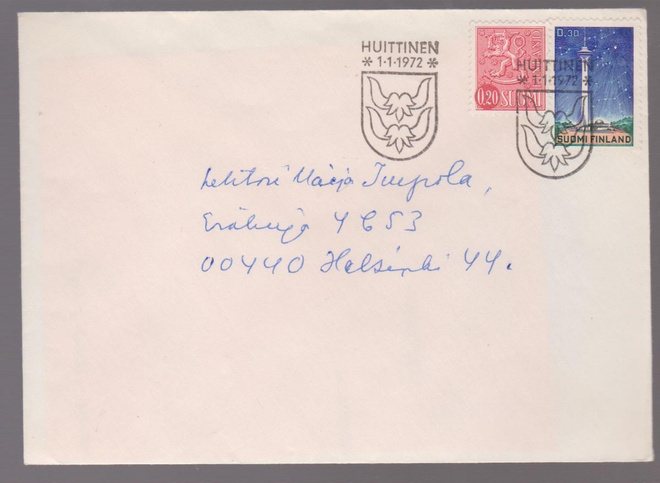 HUITTINEN
* 1-1-1972 *
0,20 SUOMI
0,30
HUITTINEN
* 1-1-1972 *
SUOMI FINLAND
Lehtori Maija
4 C 53
00440 Helsinki 44.